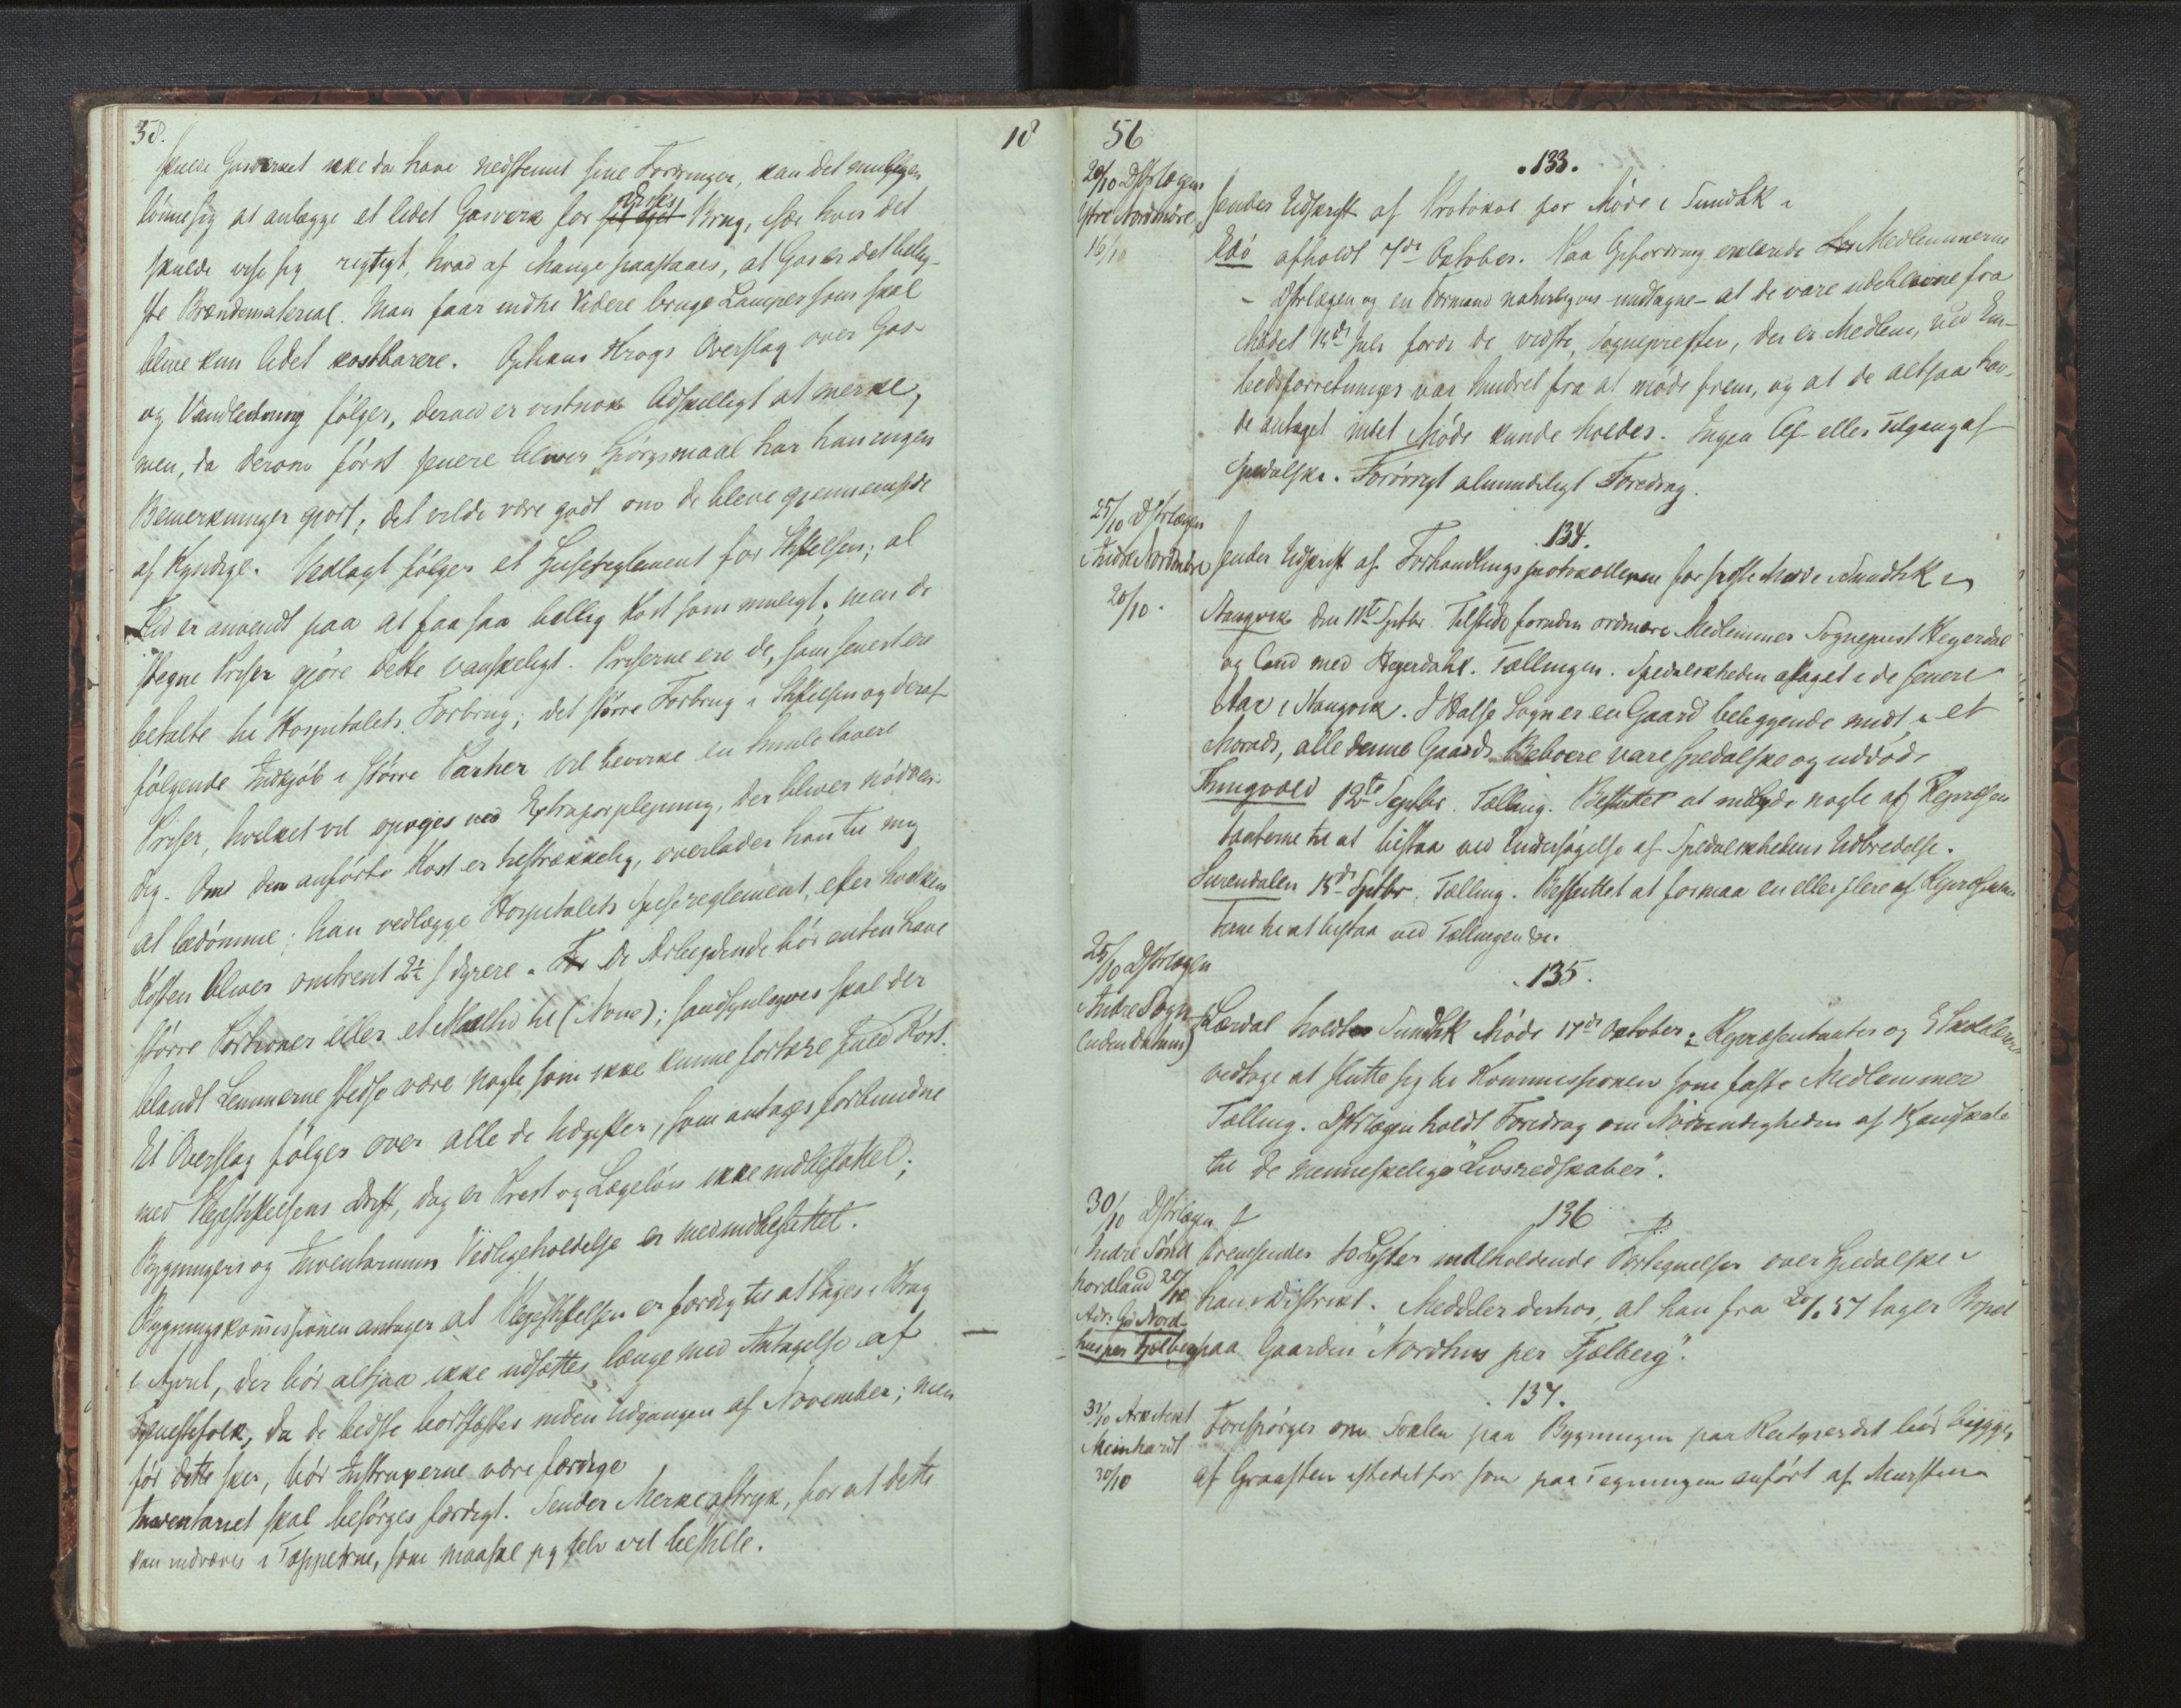 38.
skulde Gasverket ikke da have nedstemt sine Fordringer, kan det muligen
lönne sig at anlægge et lidet Gasverk for Brug, især hvis det
skulde vise sig rigtigt, hvad af Mange paastaaes, at Gas er det billig-
ste Brændematerial. Man faar indtil Videre bruge Lamper som skal
blive kun lidet kostbarere. Ophans Krogs Overslag over Gas-
og Vandledning fölger, derved er vistnok Adskilligt at merke,
men, da derom först senere bliver Spörgsmaal har han ingen
Bemerkninger gjort; det vilde være godt om de bleve gjennemsede
af Kyndige. Vedlagt fölger et Spisereglement for Stiftelsen; al
Flid er anvendt paa at faa saa billig Kost som muligt, men de
stegne Priser gjöre dette vanskeligt. Priserne ere de, som senest ere
betalte til Hospitalets Forbrug; det större Forbrug i Stiftelsen og deraf
fölgende Indkjöb i större Partier vil bevirke en Smule lavere
Priser, hvilket vil opveies ved Extraforplejning, der bliver nödven-
dig. Om den anförte Kost er tilstrækkelig, overlader han til mig
at bedömme; han vedlægge Hospitalets Spisereglement, efter hvilken
Kosten bliver omtrent 2½ s dyrere. De Arbeidende bör enten have
större Portioner eller et Maaltid til (Non); sandsynligvis skal der
blandt Lemmerne stedse være nogle, som ikke kunne fortære fuld Kost.
Et Overslag fölger over alle de Udgifter, som antages forbundne
med Pleiestiftelsens Drift, dog er Prest og Lægelön ikke indbefattet;
Bygningers og Inventariums Vedligeholdelse er medindbefattet.
Bygningskommissionen antager at Pleiestiftelsen er færdig til at tages i Brug
i April, der bör altsaa ikke udsættes længe med Antagelse af
Tjenestefolk, da de bedste bortfæstes inden Udgangen af November; men
för dette sker, bör Instruxerne være færdige
Inventariet skal besörges færdigt. Sender Merkeaftryk, for at dette
kan indvæves i Tæpperne, som maaske jeg selv vil bestille.
18
56
.133.
20/10 Dstrlægen
Ytre Nordmöre
16/10
sender Udskrift af Protokol for Möde i Sundhk i
Edö afholdt 7de Oktober. Paa Opfordring erklærede Medlemmerne
- Dstrlægen og en Formand naturligvis undtagne - at de vare udeblevne fra
Mödet 15de Juli fordi de vidste, Sognepresten, der er Medlem, ved Em-
bedsforretninger var hindret fra at möde frem, og at de altsaa hav-
de antaget intet Möde kunde holdes. Ingen Af- eller Tilgang af
Spedalske. Forövrigt almindeligt Foredrag.
.134.
25/10 Dstrlægen
i Indre Nordmöre
20/10.
sender Udskrift af Forhandlingsprotokollerne for sidste Möde i Sundhk i
Stangvik den 11te Septbr. Tilstede foruden ordinære Medlemmer Sogneprest Heyerdal
og Cand med Heyerdahl. Tællingen. Spedalskheden aftaget i de senere
Aar i Stangvik. I Halse Sogn er en Gaard beliggende midt i et
Morads, alle denne Gaards Beboere vare spedalske og uddöde
Thingvold 12te Septbr. Tælling. Besluttet at indbyde nogle af Repræsen
tanterne til at bistaa ved Undersögelse af Spedalskhedens Udbredelse.
Surendalen 15de Septbr. Tælling. Besluttet at formaa en eller flere af Repræsentan
terne til at bistaa ved Tællingen der.
.135.
25/10 Dstrlægen
i Indre Sogn
(uden Datum)
I Lærdal holdtes Sundhk Möde 17de Oktober; Repræsentanter og Skolelærere
vedtoge at slutte sig til Kommissionen som faste Medlemmer
Tælling. Dstrlægen holdt Foredrag om Nödvendigheden af Kjendskab
til de menneskelige "Livsredskaber".
136
30/10 Dstrlægen
i Indre Sönd
hordland 20/10
Adr: Gd Nord-
hus per Fjælberg
Fremsender 10 Lister indeholdende Fortegnelser over Spedalske i
hans Distrikt. Meddeler derhos, at han fra 20/1.57 tager Bopæl
paa Gaarden "Nordhus per Fjælberg".
.137.
31/10 Arkitekt
Meinhardt
30/10
Forespörges om Soklen paa Bygningen paa Reitgjerdet bör bygges
af Graasten istedetfor som paa Tegningen anfört af Mursten